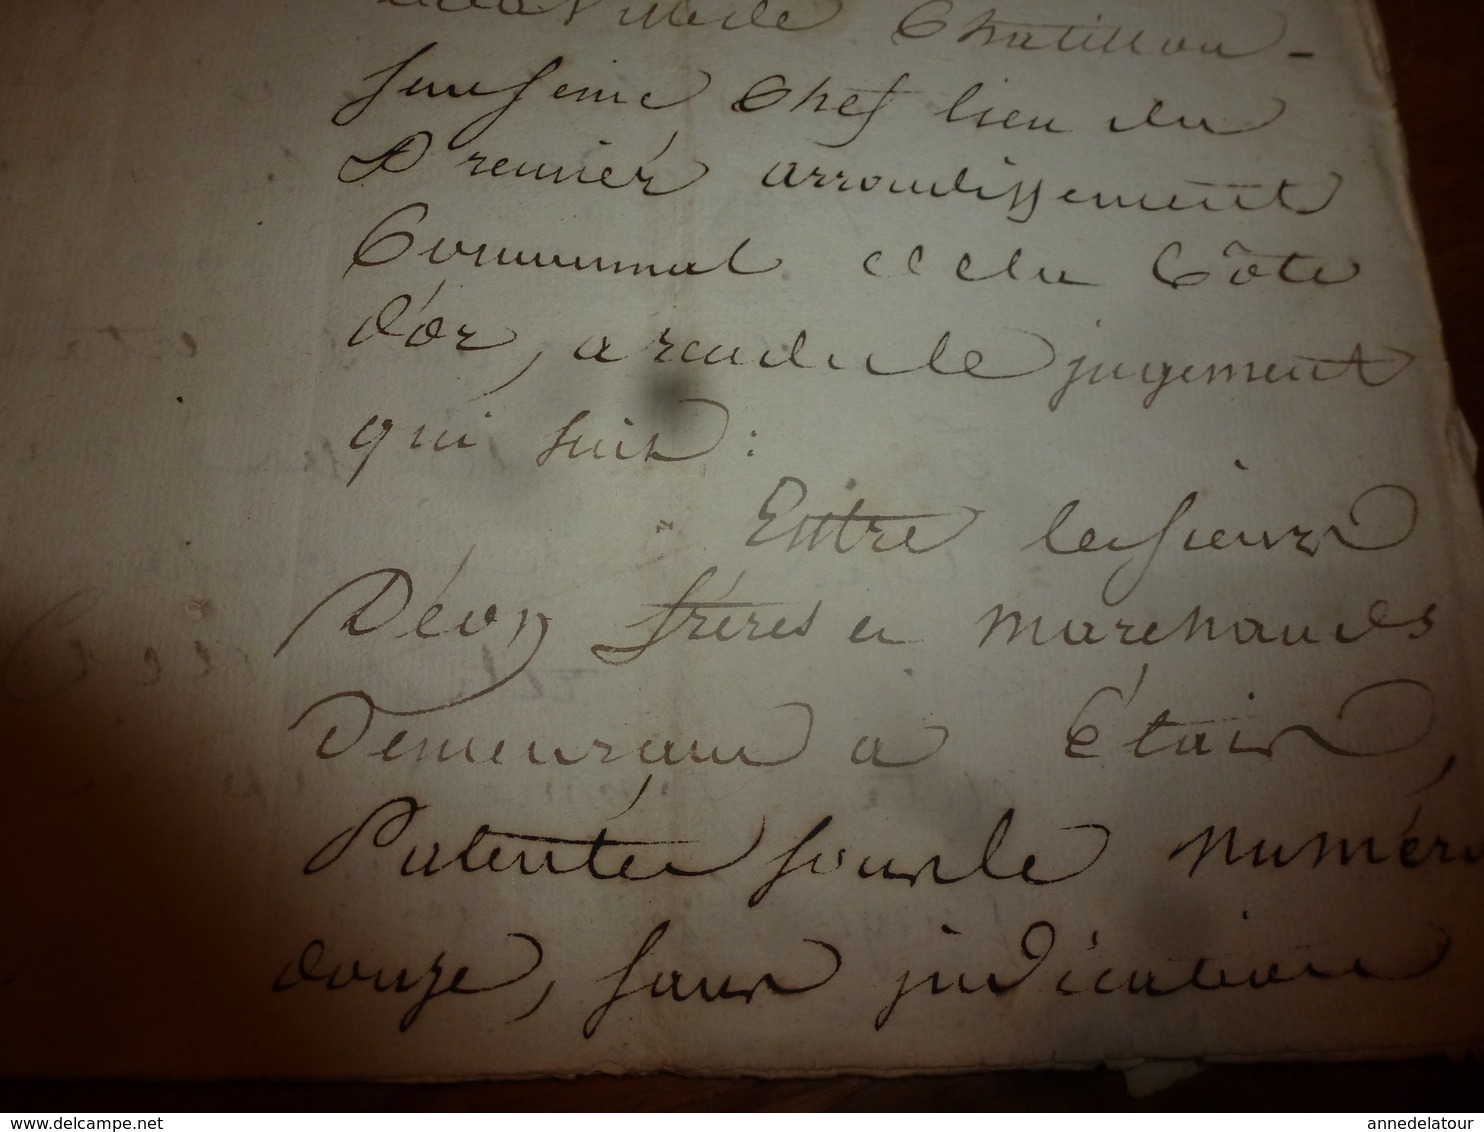 de la Ville de Chatillon -
sur Seine Chef lieu du
Premier arrondissement
Communal de la Côte
d'or, a rendu le jugement
qui suit :
Entre les sieurs
Déon frères et marchands
Demeurant a Etais,
Patentés sous le numéro
douze, sans indication
annedelatour